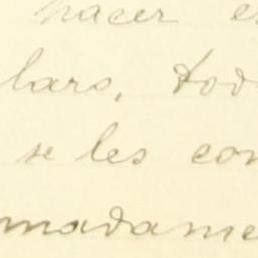 hacer e
lars, tod
se les con
madame